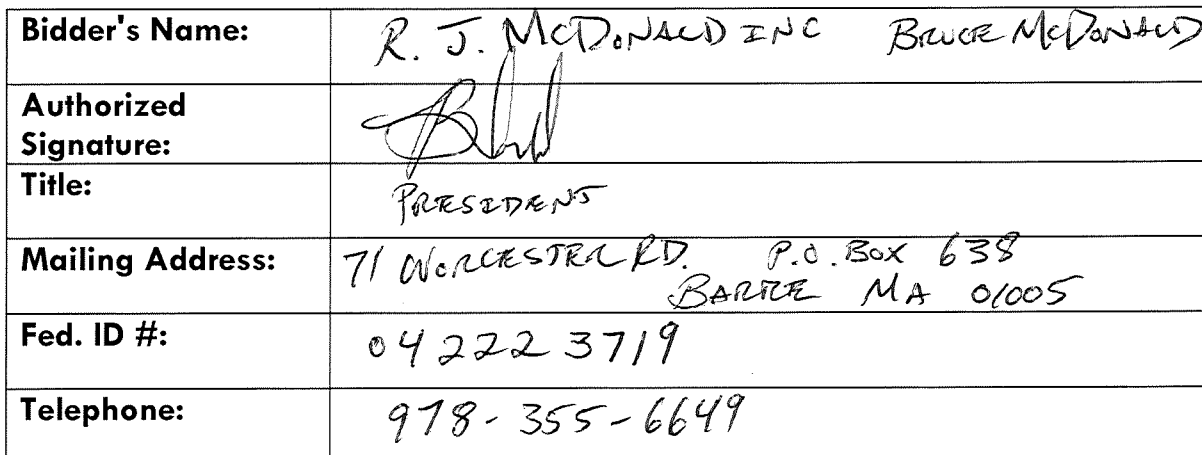 Bidder's Name: R. J. McDONALD INC BRUCE McDONALD
Authorized
Signature:
Title: PRESIDENT
Mailing Address: 71 WORCESTER RD. P.O. BOX 638
BARRE MA 01005
Fed. ID #: 04 222 3719
Telephone: 978-355-6649